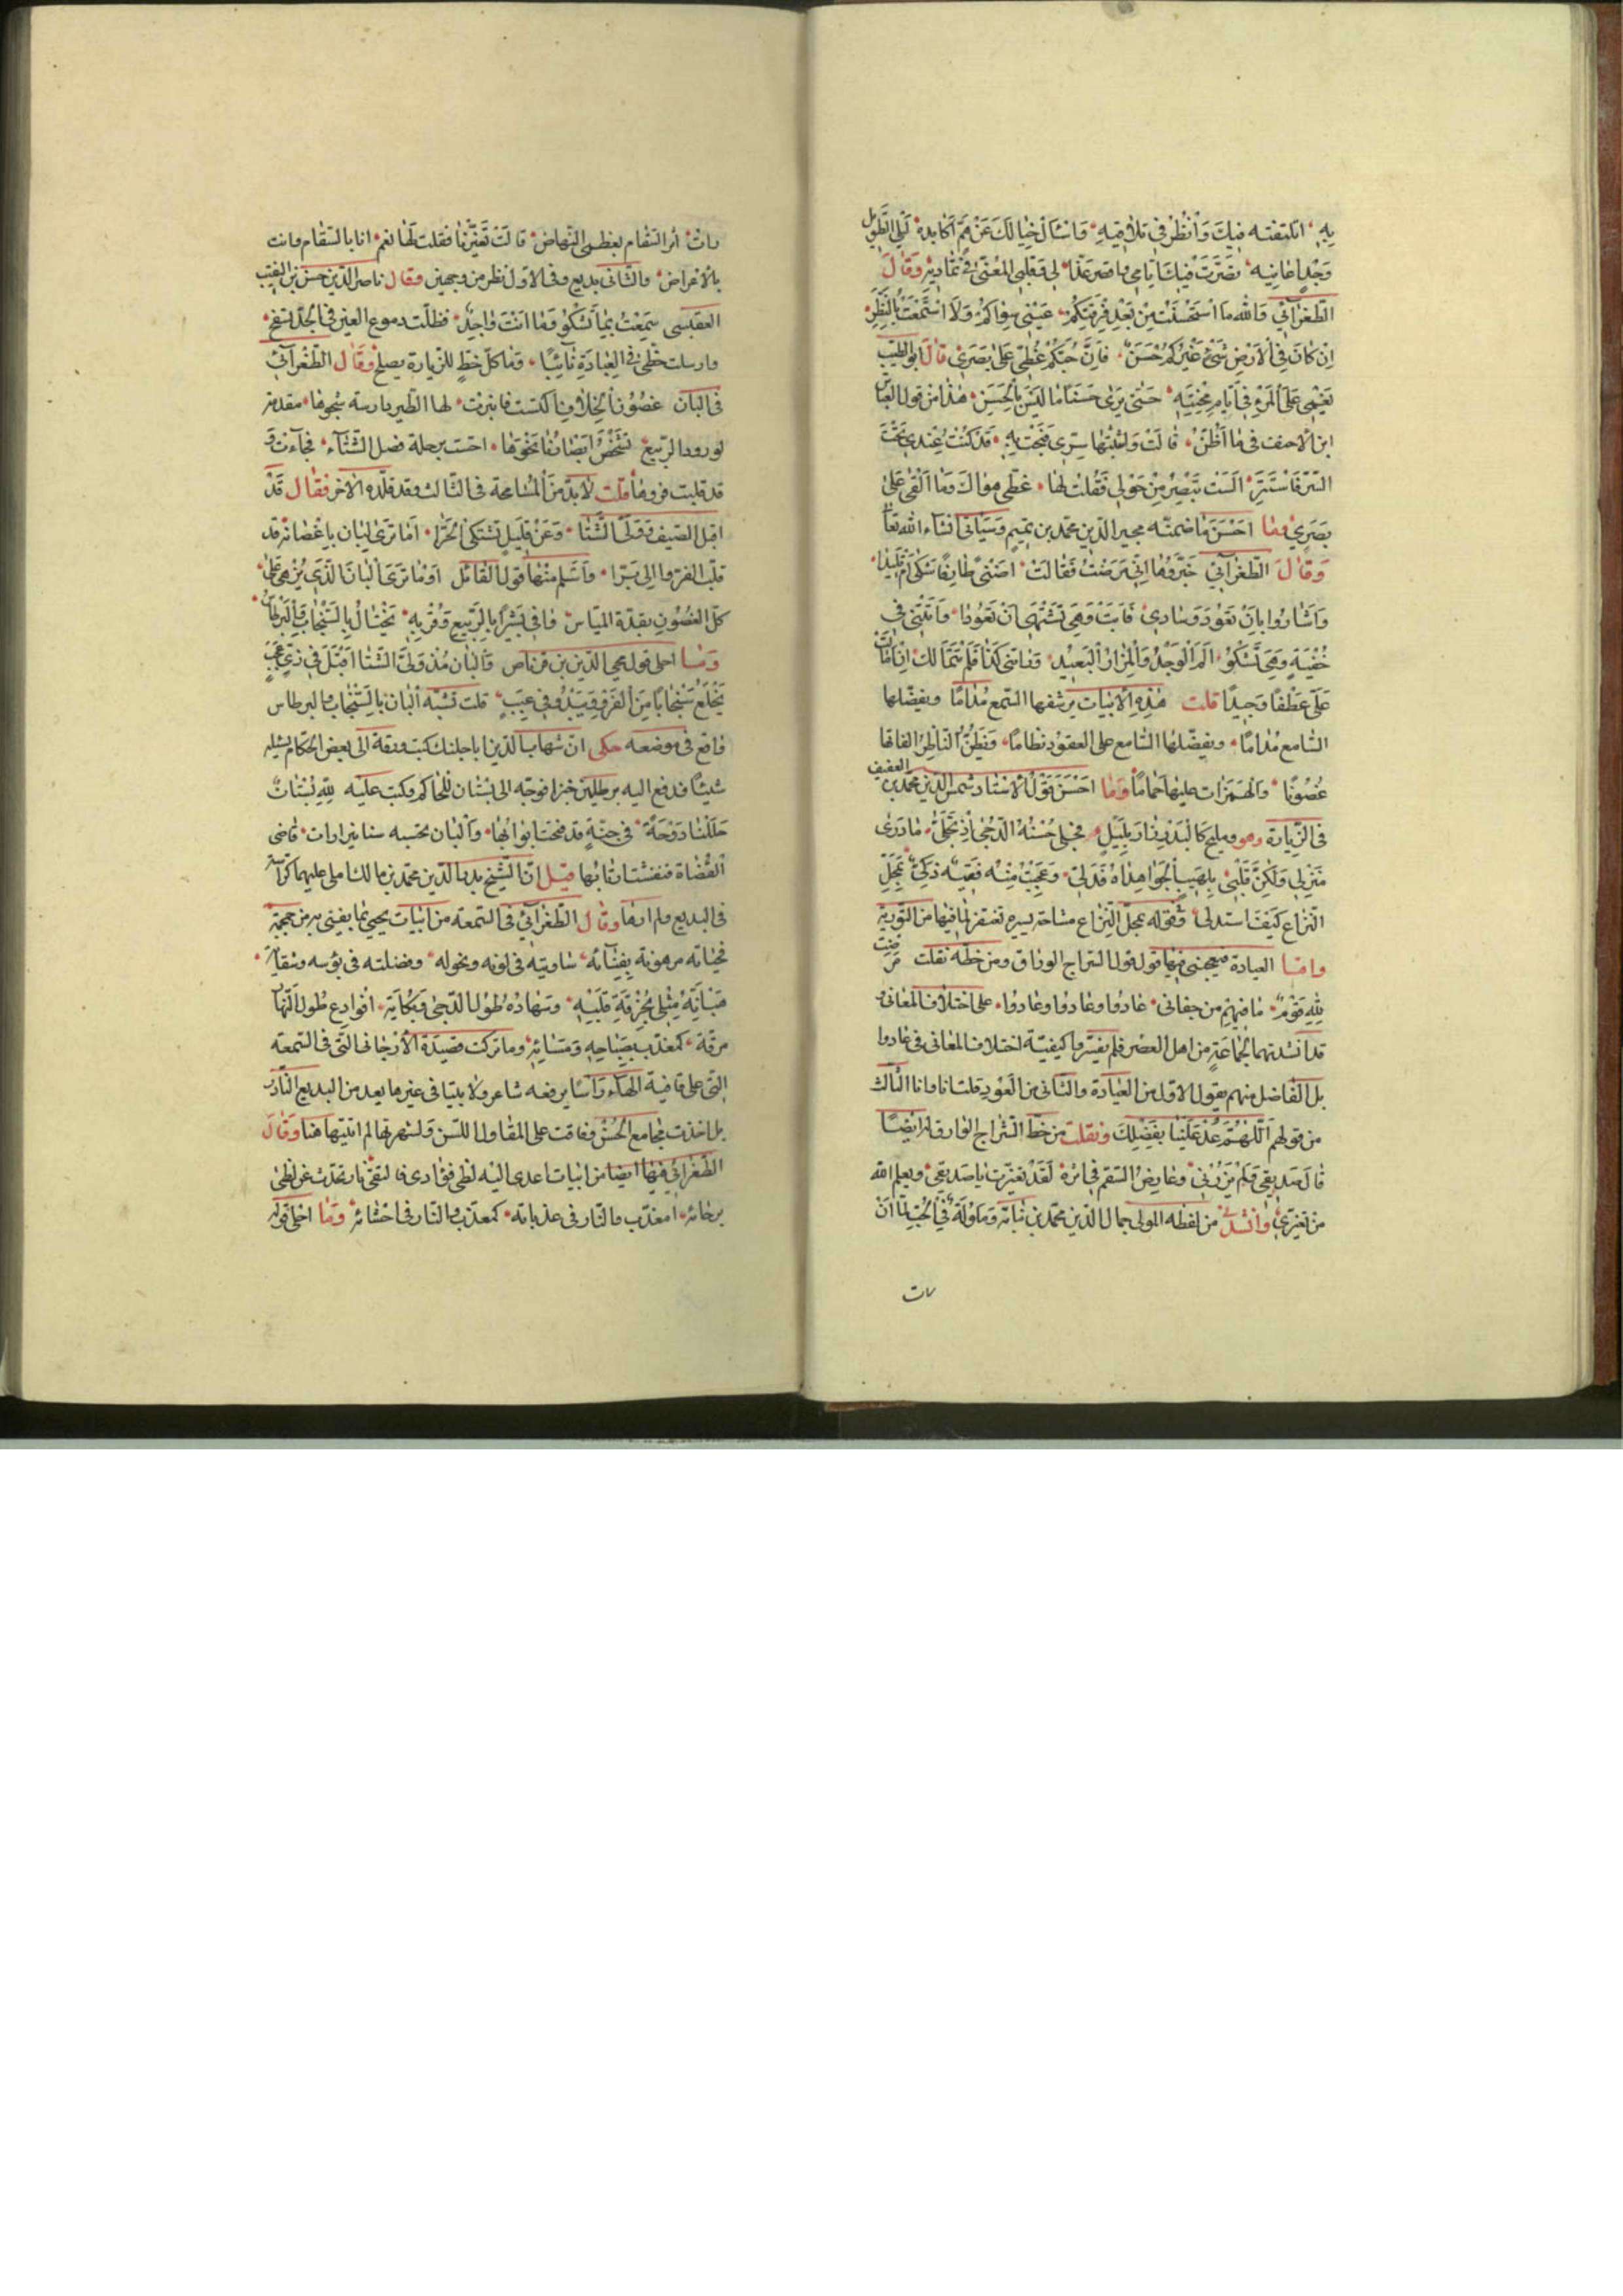 به اتلتفته فيك وانظر في تلافيه وانسال خيالك عن هم اكابده ليلي الطويل
وجدا عانيه قصرت فيك ايامي وما قصر عذالي وقلبي المعنى في تماديه وقال
الطغرآئي فالله ما استحسنت من بعد فرقتكم عيني سواكم ولا استمتعت بالنظر
ان كان في الارض شئ غيركم حسن فان حبكم غطى على بصري قال ابو الطيب
يغمى على المرء في ايام محنته حتى يرى حسنا ما ليس بالحسن هذا من قول العباس
ابن الاحنف في ما اظن قالت وابثثتها سري فبحت به قد كنت عندي تحت
الستر فاستتر الست تبصر من حولي فقلت لها غطى هواك وما القى على
بصري وما احسن ما ضمنه مجير الدين محمد بن تميم وسياتي انشاء الله تعا
وقال الطغرآئي خبروها اني مرضت فقالت اضنى طارفا شكى ام تليدا
واشاروا بان تعود وسادي فابت وهي تشتهي ان تعودا واتتني في
خفية وهي تشكو الم الوجد والمزار البعيد وراتني كذا فلم تتمالك ان امالت
على عطفا وجيدا قلت هذه الابيات يرشفها السمع مداما ويفضلها
السامع مداما ويفضلها السامع على العقود نظاما ويظن الناظر الفاتها
غصونا والهمزات عليها حماما وما احسن قول الاستاد شمس الدين محمد بن العفيف
في الزيارة وهو ومليح كالبدر زار بليل فجلى حسنه الدجى اذ تجلى ما درى
منزلي ولكن قلبي بلهيب الجوا هداه فدلى وعجبت منه فقيه ذكي بمحل
النزاع كيف استدلى وقوله بمحل النزاع مشاحة يسيره تغتفر لما فيها من التورية
واما العيادة فيعجبني فيها قول السراج الوراق ومن خطه نقلت مرضت
لله قوم ما فيهم من جفاني عادوا وعادوا وعادوا على اختلاف المعاني و
قد انشدتهما لجماعة من اهل العصر فلم يفسروا كيفية اختلاف المعاني في عادوا
بل الفاضل منهم يقول الاول من العيادة والثاني من العود قلت انا واما الثالث
من قولهم اللهم عد علينا بفضلك ونقلت من خط السراج الوارق له ايضا
قال صديقي ولم يزرني وعارض السقم في اثره لقد تغيرت يا صديقي ويعلم الله
من تغير وانشدني من لفظه المولى جمال الدين محمد بن نباتة وملولة في الحب لما ان
رات
رات اثر السقام بعظمي النهاض قالت تغيرنا فقلت لها نعم انا بالسقام وانت
بالاعراض والثاني بديع وفي الاول نظر من وجهين وقال ناصر الدين حسن بن النقيب
سمعت بما تشكو وما انت واجد فظلت دموع العين في الخد تسفح
وارسلت خطي في العيادة نائبا وما كل خط للزيارة يصلح وقال الطغرآئي
في البان غصون الخلاف اكتست فانبرت لها الطير دارسة شجوها مقدمة
لورود الربيع تشخص ابصارنا نحوها احست برحلة فصل الشتآء فجآءت و
قد قلبت فروها قلت لا بد من المسامحة في الثالث وقد قلده الاخر فقال قد
اقبل الصيف وولى الشتا وعن قليل تشتكى الحرا اما ترى البان باغصانه قد
قلب الفرو الى برا واسلم منها قول القائل او ما ترى البان الذي يزهى على
كل الغصون بقدة المياس وافي بشيرا بالربيع وقربه يختال بالسنجاب والبرطاس
وما احلى قول محي الدين بن قرناص والبان مذ ولى الشتا اقبل في زي عجيب
يخلع سنجابا من الفرو ويبدو في عيب قلت تشبه البان بالسنجاب والبرطاس
واقع في موضعه حكى ان شهاب الدين كتب ورقة الى بعض الحكام يسئله
شيئا فدفع اليه برطلين خبزا فوجه الى بستان للحاكم وكتب عليه لله بستان
حللنا دوحة في جنة قد فتحت ابوابها والبان تحسبه سنانيرا رات قاضي
القضاة فنفشت اذنابها قيل ان الشيخ بدر الدين محمد بن مالك املى عليهما كراسة
في البديع ولم ارها وقال الطغرآئي في الشمعة من ابيات
فحياته مرهونة بفنائه ساويته في لونه ونحوله وفضلته في بؤسه وشقايه
هب انه مثلي بحرقة قلبه وسهاده طول الدجى وبكايه افوادع طول النهار
مرفه كمعذب بصباحه ومسائه وما تركت قصيدة الارجاني التي في الشمعة
التي على قافية الهاء راسا يرفعه شاعر ولا بيتا في غيرها يعد من البديع النادر
بل اخذت مجامع الحسن وفاقت على المقاول اللسن ولشهرتها لم اثبتها هنا وقال
الطغرائي فيها ايضا من ابيات
امعذب والنار في عذباته كمعذب والنار في احشائه وما احلى قوله